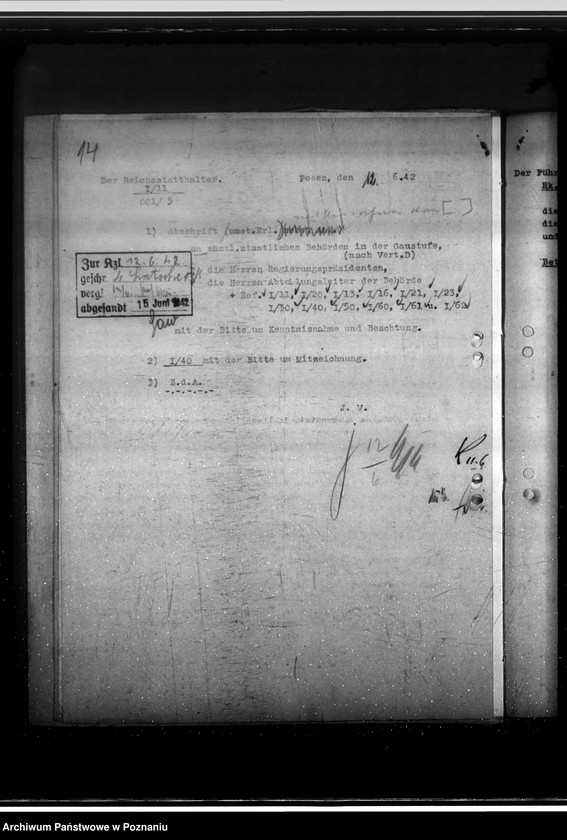 14
Der Reichsstatthalter.
I/11
001/5
Posen, den 12. 6.42
1) Abschrift (umst.Erl.
an sämtl.staatlichen Behörden in der Gaustufe,
(nach Vert.D)
die Herren Regierungspräsidenten,
die Herren Abteilungsleiter der Behörde
+ Ref. I/11, I/20, I/13, I/16, I/21, I/23,
I/30, I/40, I/50, I/60, I/61 u. I/62
Zur Kzl. 12.6.42
geschr.
vergl.
abgesandt 15. Juni 1942
mit der Bitte um Kenntnisnahme und Beachtung.
2) I/40 mit der Bitte um Mitzeichnung.
3) Z.d.A.
J. V.
12
6
11.6
Der Führ
Rk.
die
die
und
Bet
Archiwum Państwowe w Poznaniu